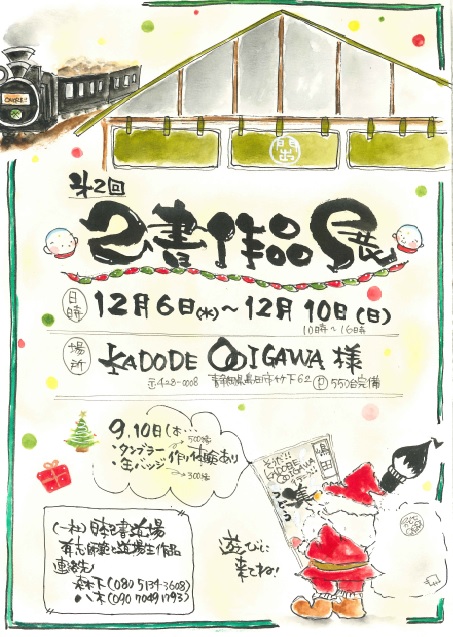 門出
第2回
己書作品展
日時 12月6日(水)～12月10日(日)
10時～16時
場所 KADODE OOIGAWA 様
〒428-0008 静岡県島田市竹下62 Ⓟ550台完備
9.10日は…
・タンブラー 500円
・缶バッジ 300円
作り体験あり
島田
そうだ!!
KADODE
OOIGAWA
つどう
(一社)日本己書道場
有志師範と道場生作品
連絡先
森下(080 5134-3608)
八木(090 7049 1793)
遊びに
来てね!